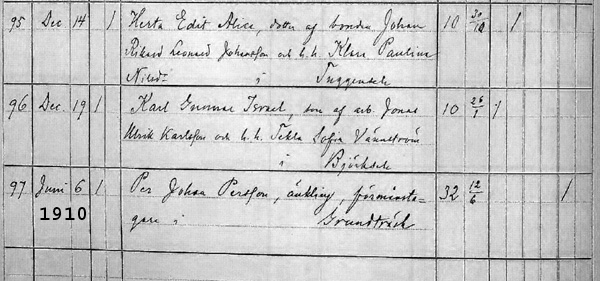 95 Dec 14 1 Herta Edit Alice, dotter af bonden Johan 10 30/10 1
Rikard Leonard Johansson och h. h. Klara Paulina
i Tuggensele
96 Dec. 19 1 Karl Gunnar Israel, son af arb. Jonas 10 26/1 1
Ulrik Karlsson och h. h. Tekla Sofia Vännström
i Björksele
97 Juni 6 1 Per Johan Persson, änkling, förmånsta- 32 12/6 1
1910 gare i Grundträsk